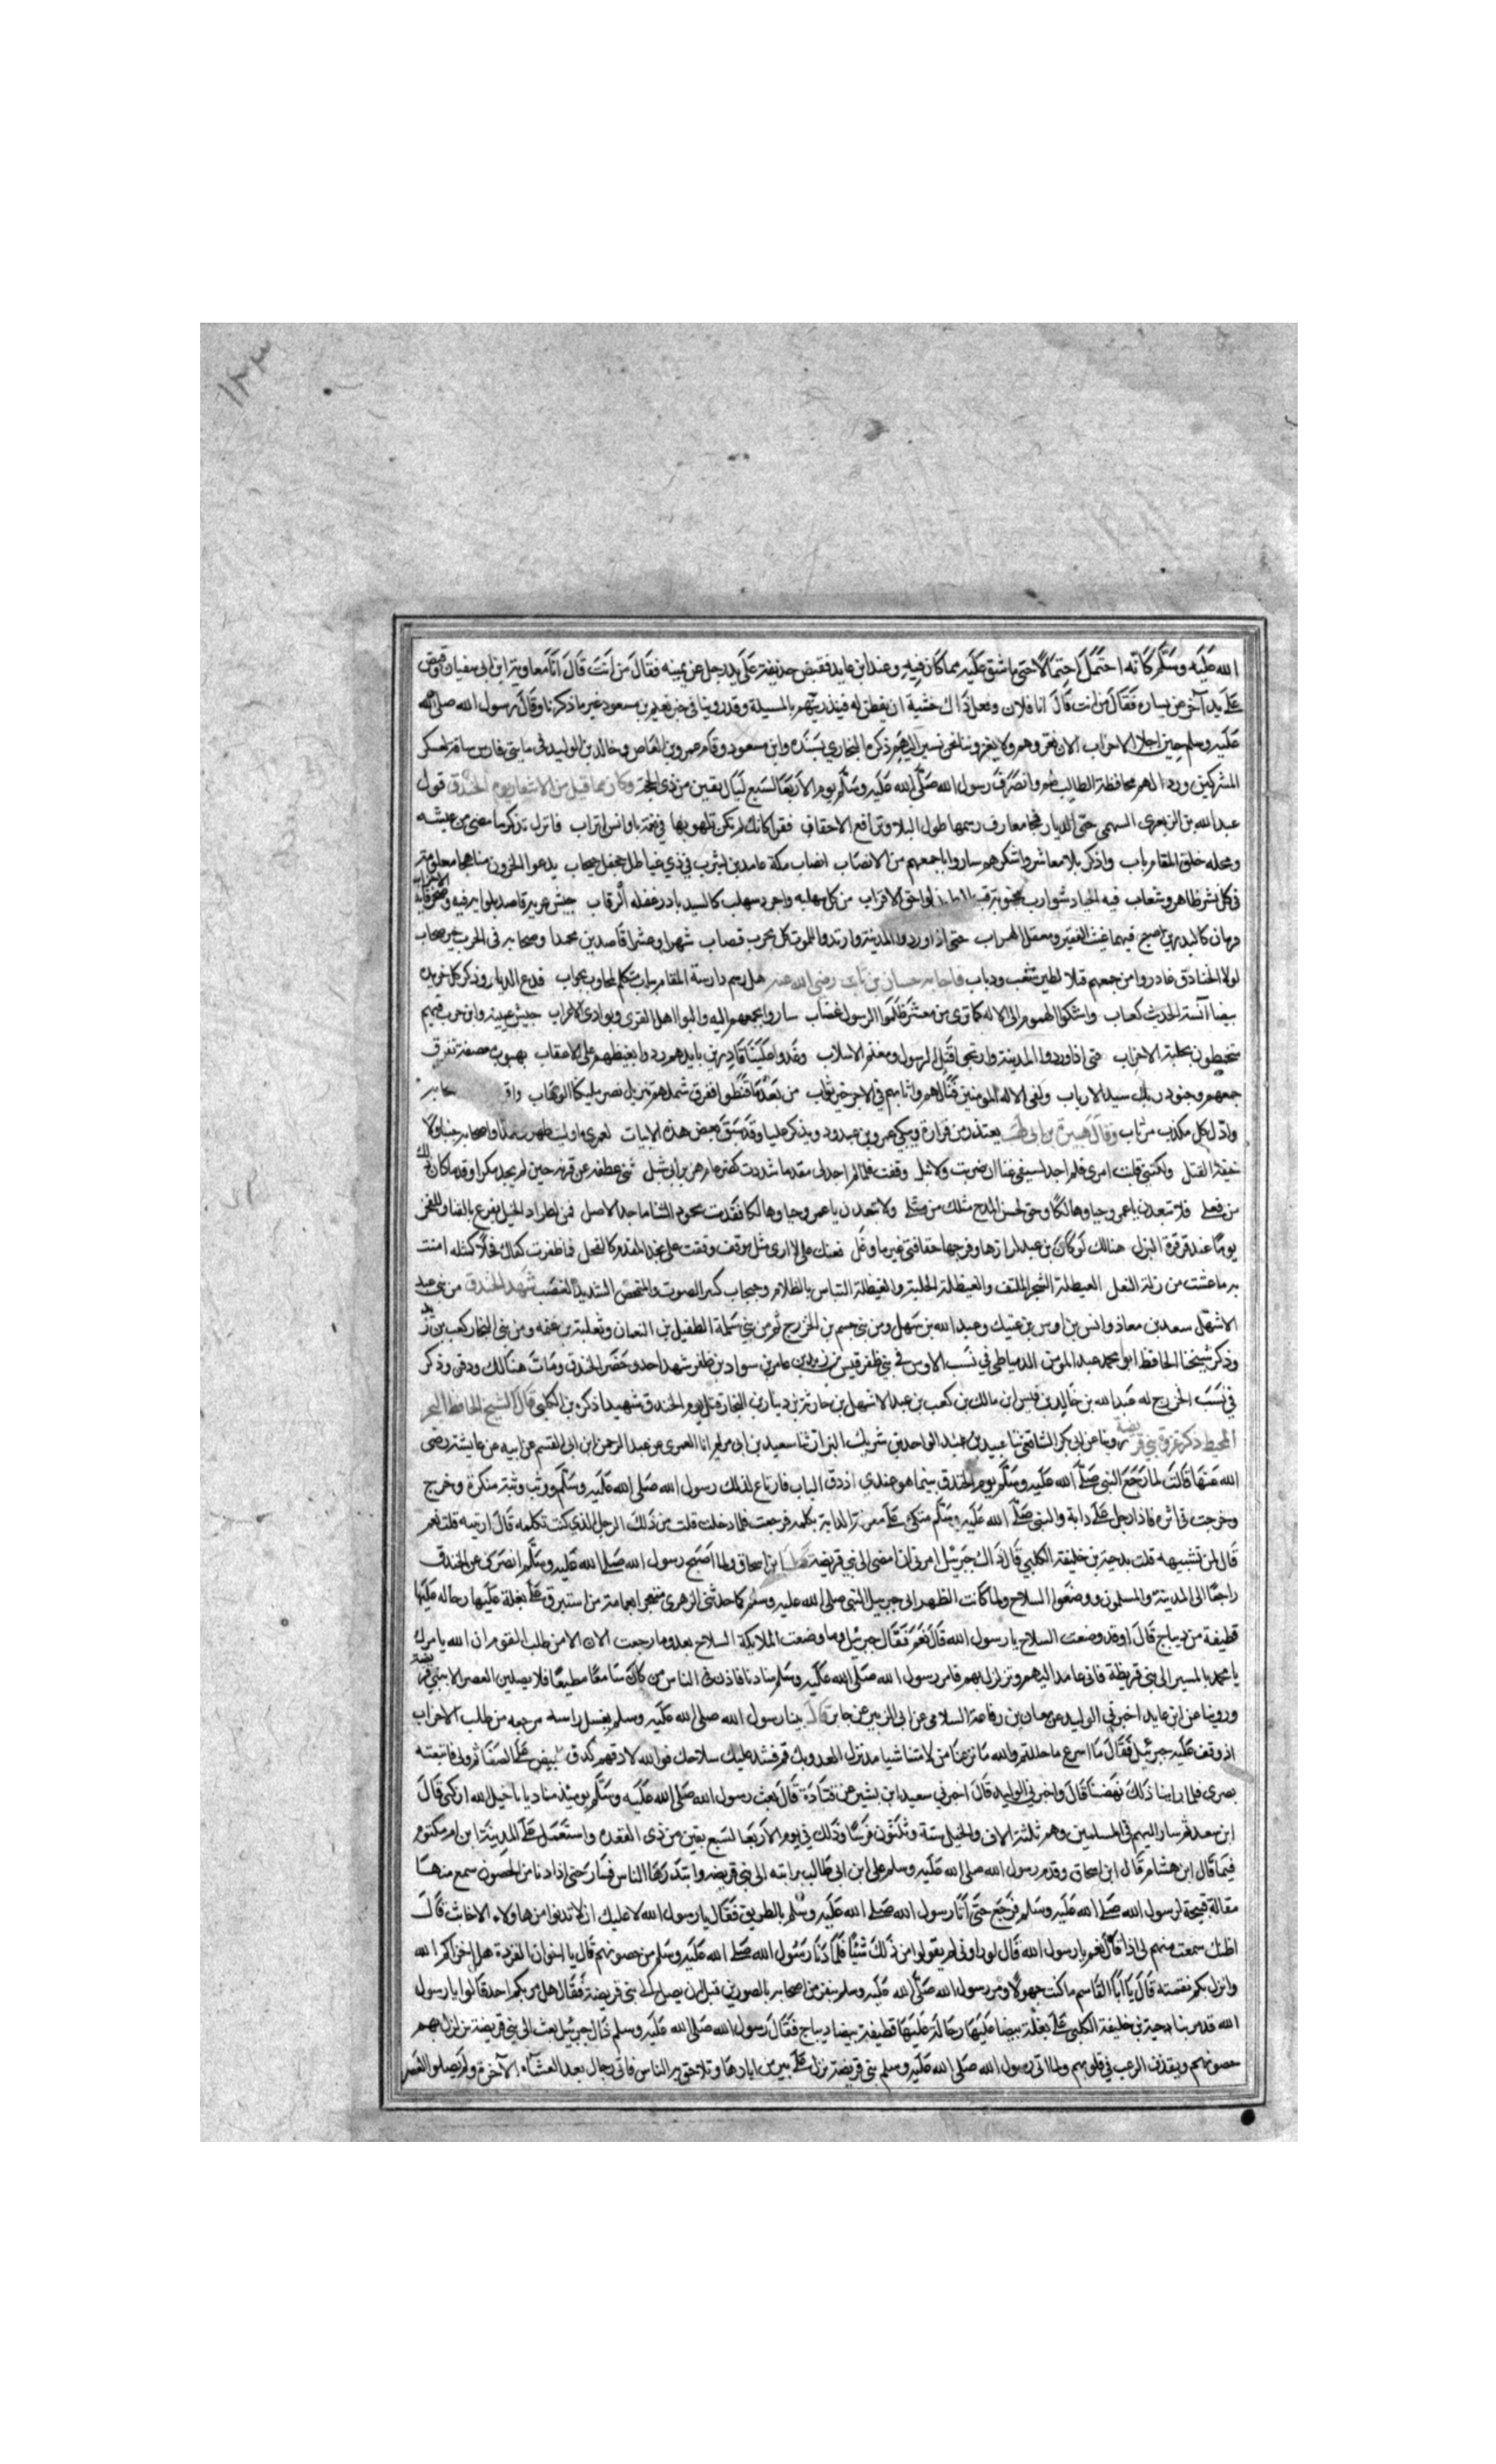 ١٢٣
الله عليه وسلم كانه احتمل احتمالا حتى ما شق عليه مما كان فيه وعند ابن عايد فقبض حذيفة على يد رجل عن يمينه فقال من انت قال انا معاوية ابن ابي سفيان وقبض
على يد آخر عن يساره فقال من انت قال انا فلان وفعل ذاك خشية ان يفطن له فبدرهم بالمسيلة وقد روينا في خبر نعيم بن مسعود غير ما ذكرنا وقال رسول الله صلى الله
عليه وسلم حين اجلا الاحزاب الان نغزوهم ولا يغزونا نحن نسير اليهم ذكره البخاري بسنده وابن مسعود وقام عمرو بن العاص وخالد بن الوليد في مايتي فارس ساقة لعسكر
المشركين ورداً لهم مخافة الطلب وانصرف رسول الله صلى الله عليه وسلم يوم الاربعا لسبع ليال بقين من ذي الحجة وكان مما قيل من الاشعار يوم الخندق قول
عبد الله بن الزبعرى السهمي حي الديار محا معارف رسمها طول البلا وتراوح الاحقاب فقرا كانك لم تكن تلهو بها في نعمة باوانس اتراب فاترك تذكر ما مضى من عيشه
ومحله خلق المقام يباب واذكر بلاء معاشر واشكرهم ساروا باجمعهم من الانصاب انصاب مكة عامدين ليثرب في ذي غياطل جحفل جبجاب يدعو الحزون مناهجا معلومة
في كل نشز ظاهر وشعاب فيه الجياد شوازب مجنوبة قب البطون لواحق الاقراب من كل سلهبة واجرد سلهب كالسيد بادر غفلة الرقاب جيش عيينة قاصد بلوايه فيه وصخر قايد الاحزاب
قرمان كالبدرين اصبح فيهما غيث الفقير ومعقل الهراب حتى اذا وردوا المدينة وارتدوا للموت كل مجرب قضاب شهرا وعشرا قاصدين محمدا وصحابه في الحرب خير صحاب
لولا الخنادق غادروا من جمعهم قتلا لطير سغب وذياب فاجابه حسان بن ثابت رضي الله عنه هل رسم دارسة المقام يباب متكلم لمحاور بجواب فدع الديار وذكر كل خريده
بيضا آنسة الحديث كعاب واشكو الهموم الى الاله كما ترى من معشر ظلموا الرسول غضاب ساروا بجمعهم اليه والبوا اهل القرى وبوادي الاعراب جيش عيينة وابن حرب فيهم
متخمطون بحلبة الاحزاب حتى اذا وردوا المدينة وارتجوا قتل الرسول ومغنم الاسلاب وغدوا علينا قادرين بايدهم ردوا بغيظهم على الاعقاب بهبوب معصفة تفرق
جمعهم وجنود ربك سيد الارباب وكفى الاله المومنين قتالهم واثابهم في الاجر خير ثواب من بعد ما قنطوا ففرق شملهم تنزيل نصر مليكنا الوهاب
واذل كل مكذب مرتاب وقال هبيرة بن ابي وهب يعتذر من فراره ويبكي عمرو بن عبد ود ويذكر عليا وقد سبق بعض هذه الابيات لعمري ما وليت ظهري محمدا واصحابه جبنا ولا
خيفة القتل ولكنني قلبت امري فلم اجد لسيفي غنا ان ضربت ولا نبل وقفت فلما لم اجد لي مقدما شددت كضرغام هزبر ابي شبل ثنى عطفه عن قرنه حين لم يجد مكرا وقدما كان ذلك
من فعلي فلا تبعدن يا عمرو حيا وهالكا وحق لحسن المدح مثلك من مثلي ولا تبعدن يا عمرو حيا وهالكا فقدت محمود الثنا ماجد الاصل فمن لطراد الخيل تقدع بالقنا وللفخر
يوما عند قرقرة البزل هنالك لو كان بن عبد لزارها وفرجها حقا فتى غير ما وغل فعنك علي لا ارى مثل موقف وقفت على نجد المقدم كالفحل فما ظفرت كفاك فخرا كمثله امنت
به ما عشت من زلة النعل الغيطلة الشجر الملتف والغيطلة الجلبة والغيطلة التباس الظلام وجبجاب كبير الصوت والمتخمط الشديد الغضب شهد الخندق من بني عبد
الاشهل سعد بن معاذ وانس بن اوس بن عتيك وعبد الله بن سهل ومن بني جشم بن الخزرج ثم من بني سلمة الطفيل بن النعمان وثعلبة بن عنمه ومن بني النجار كعب بن زيد
وذكر شيخنا الحافظ ابو محمد عبد المومن الدمياطي في نسب الاوس في بني ظفر قيس بن زيد بن عامر بن سواد بن ظفر شهد احد وحضر الخندق ومات هنالك ودفن وذكر
في نسب الخزرج له عبد الله بن خالد بن قيس ابن مالك بن كعب بن عبد الاشهل بن حارثة بن دينار بن النجار قتل يوم الخندق شهيدا ذكره بن الكلبي قال الشيخ الحافظ البحر
المحيط ذكر غزوة بني قريضة روينا عن ابي بكر الشافعي ثنا عبيد بن عبد الواحد بن شريك البزار ثنا سعيد بن ابي مريم انا العمري عن عبد الرحمن ابن ابي القسم عن ابيه عن عايشة رضى
الله عنها قالت لما رجع النبي صلى الله عليه وسلم يوم الخندق بينما هو عندي اذ دق الباب فارتاع لذلك رسول الله صلى الله عليه وسلم ووثب وثبة منكرة وخرج
وخرجت في اثره فاذا رجل على دابة والنبي صلى الله عليه وسلم متكئ على معرفة الدابة يكلمه فرجعت فلما دخلت قلت من ذلك الرجل الذي كنت تكلمه قال ارايته قلت نعم
قال لمن تشبهيه قلت بدحية بن خليفة الكلبي قال ذاك جبريل امرني ان امضى الى بني قريضة قال ابن اسحاق ولما اصبح رسول الله صلى الله عليه وسلم انصرف عن الخندق
راجعا الى المدينة والمسلمون ووضعوا السلاح ولما كانت الظهر اتى جبريل النبي صلى الله عليه وسلم كما حدثني الزهري معتجرا بعمامة من استبرق على بغلة عليها رحاله عليها
قطيفة من ديباج قال اوقد وضعت السلاح يا رسول الله قال نعم فقال جبريل وما وضعت الملايكة السلاح بعد وما رجعت الان الا من طلب القوم ان الله يامرك
يا محمد بالمسير الى بني قريظة فاني عامد اليهم فمزلزل بهم فامر رسول الله صلى الله عليه وسلم مناديا فاذن في الناس من كان سامعا مطيعا فلا يصلين العصر الا ببني قريضة
وروينا عن ابن عايد اخبرني الوليد عن معان بن رفاعة السلامي عن ابي الزبير عن جابر قال بينا رسول الله صلى الله عليه وسلم يغسل راسه مرجعه من طلب الاحزاب
اذ وقف عليه جبريل فقال ما اسرع ما حللتم والله ما نزعنا من لامتنا شيا مذ نزل العدو بك قم فشد عليك سلاحك فوالله لادقنهم كدق البيض على الصفا ثم ولى فاتبعته
بصري فلما راينا ذلك نهضنا قال واخبرني الوليد قال اخبرني سعيد ابن بشير عن قتادة قال بعث رسول الله صلى الله عليه وسلم يوميذ مناديا يا خيل الله اركبي قال
ابن سعد ثم سار اليهم في المسلمين وهم ثلثة الاف والخيل ستة وثلثون فرسا وذلك في يوم الاربعا لسبع بقين من ذي القعده واستعمل على المدينة ابن ام مكتوم
فيما قال ابن هشام قال ابن اسحاق وقدم رسول الله صلى الله عليه وسلم علي ابن ابي طالب برايته الى بني قريضه وابتدرها الناس فسار حتى اذا دنا من الحصون سمع منها
مقالة قبيحة لرسول الله صلى الله عليه وسلم فرجع حتى اتا رسول الله صلى الله عليه وسلم بالطريق فقال يا رسول الله لا عليك ان لا تدنوا من هاولاء الاخابث قال
اظنك سمعت منهم لي اذا قال نعم يا رسول الله قال لو راوني لم يقولوا من ذلك شيئا فلما دنا رسول الله صلى الله عليه وسلم من حصونهم قال يا اخوان القردة هل اخزاكم الله
وانزل بكم نقمته قال يا ابا القاسم ما كنت جهولا ومر رسول الله صلى الله عليه وسلم بنفر من اصحابه بالصورين قبل ان يصل الى بني قريضة فقال هل مر بكم احد قالوا يا رسول
الله قد مر بنا دحية بن خليفة الكلبي على بغلة بيضا عليها رحالة عليها قطيفة بيضا ديباج فقال رسول الله صلى الله عليه وسلم ذاك جبريل بعث الى بني قريضة يزلزل بهم
حصونهم ويقذف الرعب في قلوبهم ولما اتى رسول الله صلى الله عليه وسلم بني قريضة نزل على بير من ابارها وتلاحق به الناس فاتى رجال بعد العشاء الآخرة ولم يصلوا العصر